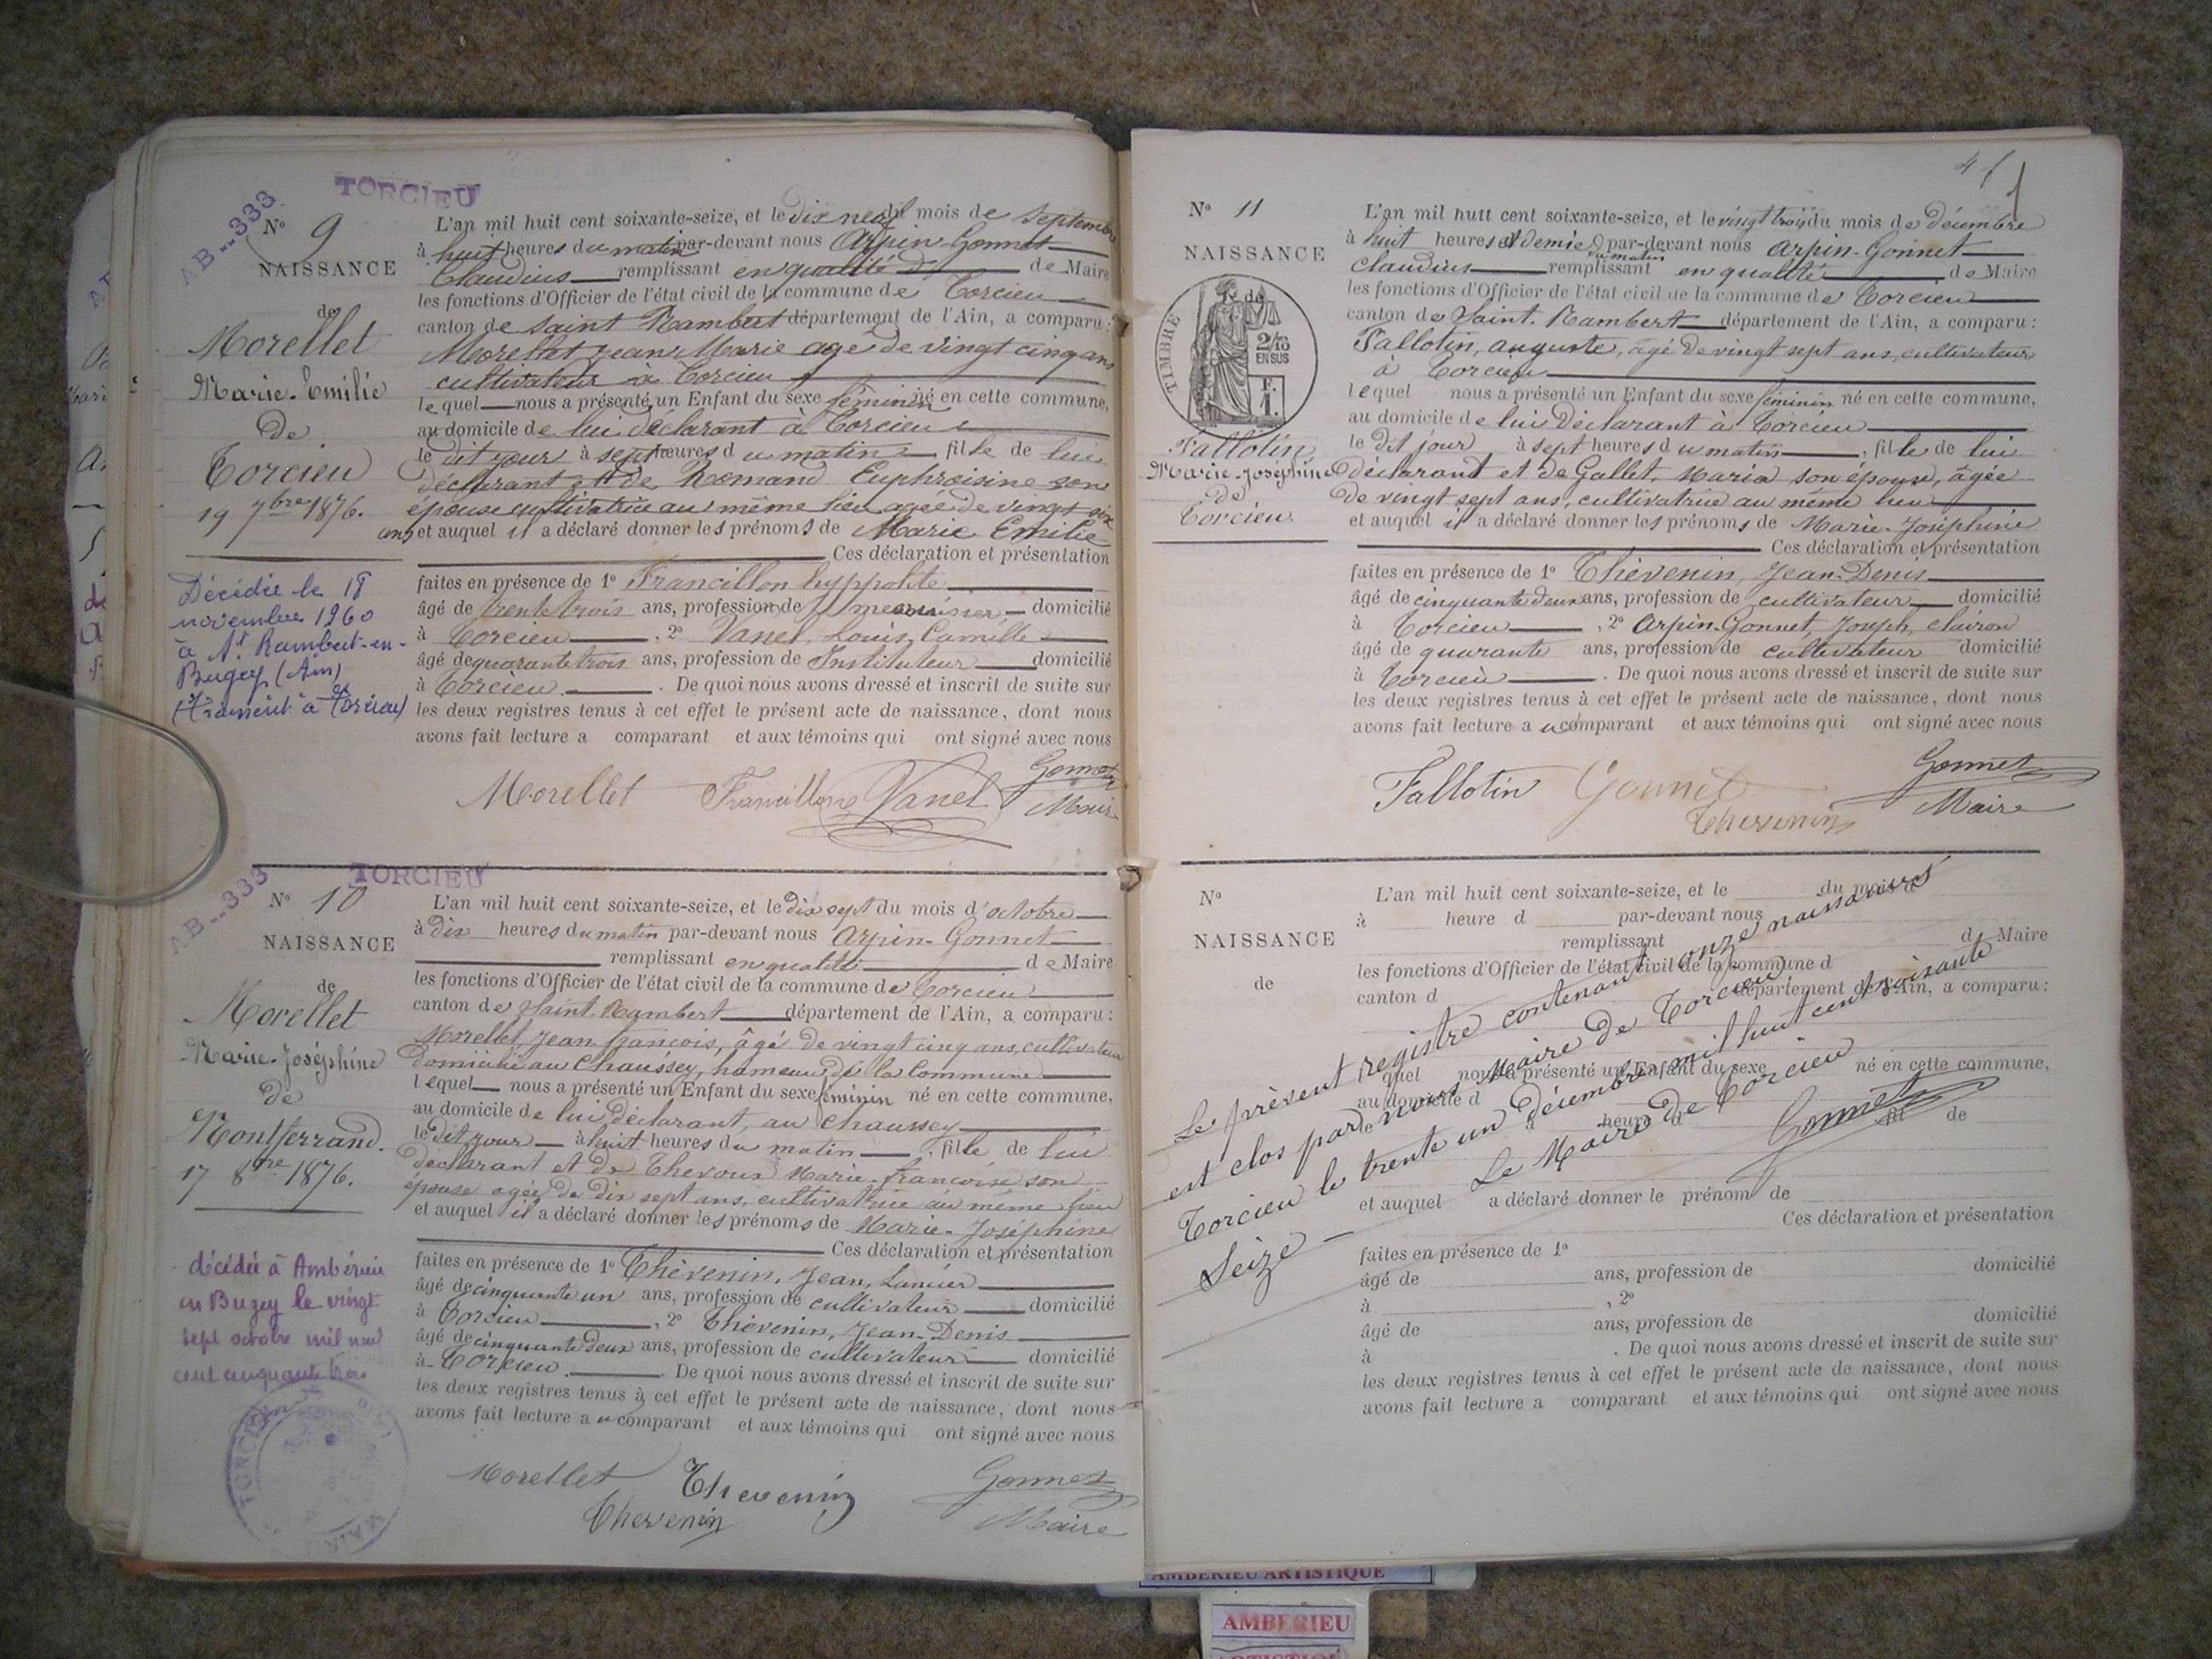 TORCIEU
AB--333
N° 9
NAISSANCE
de
Morellet
Marie-Emilie
de
Torcieu
19 7bre 1876.
Décédée le 18
novembre 1960
à St Rambert-en-
Bugey (Ain)
L'an mil huit cent soixante-seize, et le dix neuf du mois de Septembre
à huit heures du matin par-devant nous Arpin-Gonnet
Claudius remplissant en qualité de Maire
les fonctions d'Officier de l'état civil de la commune de Torcieu
canton de Saint Rambert département de l'Ain, a comparu :
Morellet Jean Marie age de vingt cinq ans
cultivateur à Torcieu
lequel nous a présenté un Enfant du sexe féminin né en cette commune,
au domicile de lui déclarant à Torcieu
le dit jour à sept heures du matin fille de lui
déclarant et de Romand Euphroisine son
épouse cultivatrice au même lieu agée de vingt six
ans et auquel il a déclaré donner les prénoms de Marie Emilie
Ces déclaration et présentation
faites en présence de 1° Francillon hyppolite
âgé de trente trois ans, profession de menuisier domicilié
à Torcieu, 2° Vanel, Louis, Camille
âgé de quarante trois ans, profession de Instituteur domicilié
à Torcieu. De quoi nous avons dressé et inscrit de suite sur
les deux registres tenus à cet effet le présent acte de naissance, dont nous
avons fait lecture a comparant et aux témoins qui ont signé avec nous
Morellet Francillon Vanel Gonnet
Maire
TORCIEU
AB--333
N° 10
NAISSANCE
de
Morellet
Marie-Joséphine
de
Montferrand.
17 8bre 1876.
décédée à Ambérieu
en Bugey le vingt
sept octobre mil neuf
cent cinquante trois
L'an mil huit cent soixante-seize, et le dix sept du mois d'octobre
à dix heures du matin par-devant nous Arpin-Gonnet
remplissant en qualité de Maire
les fonctions d'Officier de l'état civil de la commune de Torcieu
canton de Saint Rambert département de l'Ain, a comparu :
Morellet, Jean-francois, âgé de vingt cinq ans, cultivateur
domicilié au Chaussey, hameau de la Commune
lequel nous a présenté un Enfant du sexe féminin né en cette commune,
au domicile de lui déclarant, au Chaussey
le dit jour à huit heures du matin, fille de lui
déclarant et de Thevoux Marie-francoise son
épouse agée de dix sept ans, cultivatrice au même lieu
et auquel il a déclaré donner les prénoms de Marie-Joséphine
Ces déclaration et présentation
faites en présence de 1° Thévenin, Jean,
âgé de cinquante un ans, profession de cultivateur domicilié
à Torcieu, 2° Thévenin, Jean-Denis
âgé de cinquante deux ans, profession de cultivateur domicilié
à Torcieu. De quoi nous avons dressé et inscrit de suite sur
les deux registres tenus à cet effet le présent acte de naissance, dont nous
avons fait lecture au comparant et aux témoins qui ont signé avec nous
Morellet Thevenin Gonnet
Thevenin Maire
N° 11
NAISSANCE
de
TIMBRE
2/10
EN SUS
Fallotin
Marie-Joséphine
de
Torcieu
L'an mil huit cent soixante-seize, et le vingt trois du mois de décembre
à huit heures et demie du matin par-devant nous Arpin-Gonnet
Claudius remplissant en qualité de Maire
les fonctions d'Officier de l'état civil de la commune de Torcieu
canton de Saint-Rambert département de l'Ain, a comparu :
Fallotin, auguste, âgé de vingt sept ans, cultivateur
à Torcieu
lequel nous a présenté un Enfant du sexe féminin né en cette commune,
au domicile de lui déclarant à Torcieu
le dit jour à sept heures du matin, fille de lui
déclarant et de Gallet, Maria son épouse, âgée
de vingt sept ans, cultivatrice au même lieu
et auquel il a déclaré donner les prénoms de Marie-Joséphine
Ces déclaration et présentation
faites en présence de 1° Thévenin, Jean-Denis
âgé de cinquante deux ans, profession de cultivateur domicilié
à Torcieu, 2° Arpin-Gonnet, Joseph,
âgé de quarante ans, profession de cultivateur domicilié
à Torcieu. De quoi nous avons dressé et inscrit de suite sur
les deux registres tenus à cet effet le présent acte de naissance, dont nous
avons fait lecture au comparant et aux témoins qui ont signé avec nous
Fallotin Gonnet Gonnet
Thevenin Maire
N°
NAISSANCE
de
L'an mil huit cent soixante-seize, et le du mois d
à heure d par-devant nous
remplissant d Maire
les fonctions d'Officier de l'état civil de la commune d
canton d département de l'Ain, a comparu :
lequel nous a présenté un Enfant du sexe né en cette commune,
au domicile d
le à heure d fil de
et auquel a déclaré donner le prénom de
Ces déclaration et présentation
faites en présence de 1°
âgé de ans, profession de domicilié
à , 2°
âgé de ans, profession de domicilié
à . De quoi nous avons dressé et inscrit de suite sur
les deux registres tenus à cet effet le présent acte de naissance, dont nous
avons fait lecture a comparant et aux témoins qui ont signé avec nous
Le présent registre contenant onze naissances
est clos par nous Maire de Torcieu
Torcieu le trente un décembre mil huit cent soixante
Seize
Le Maire de Torcieu
Gonnet
AMBERIEU ARTISTIQUE
AMBERIEU
ARTISTIQUE